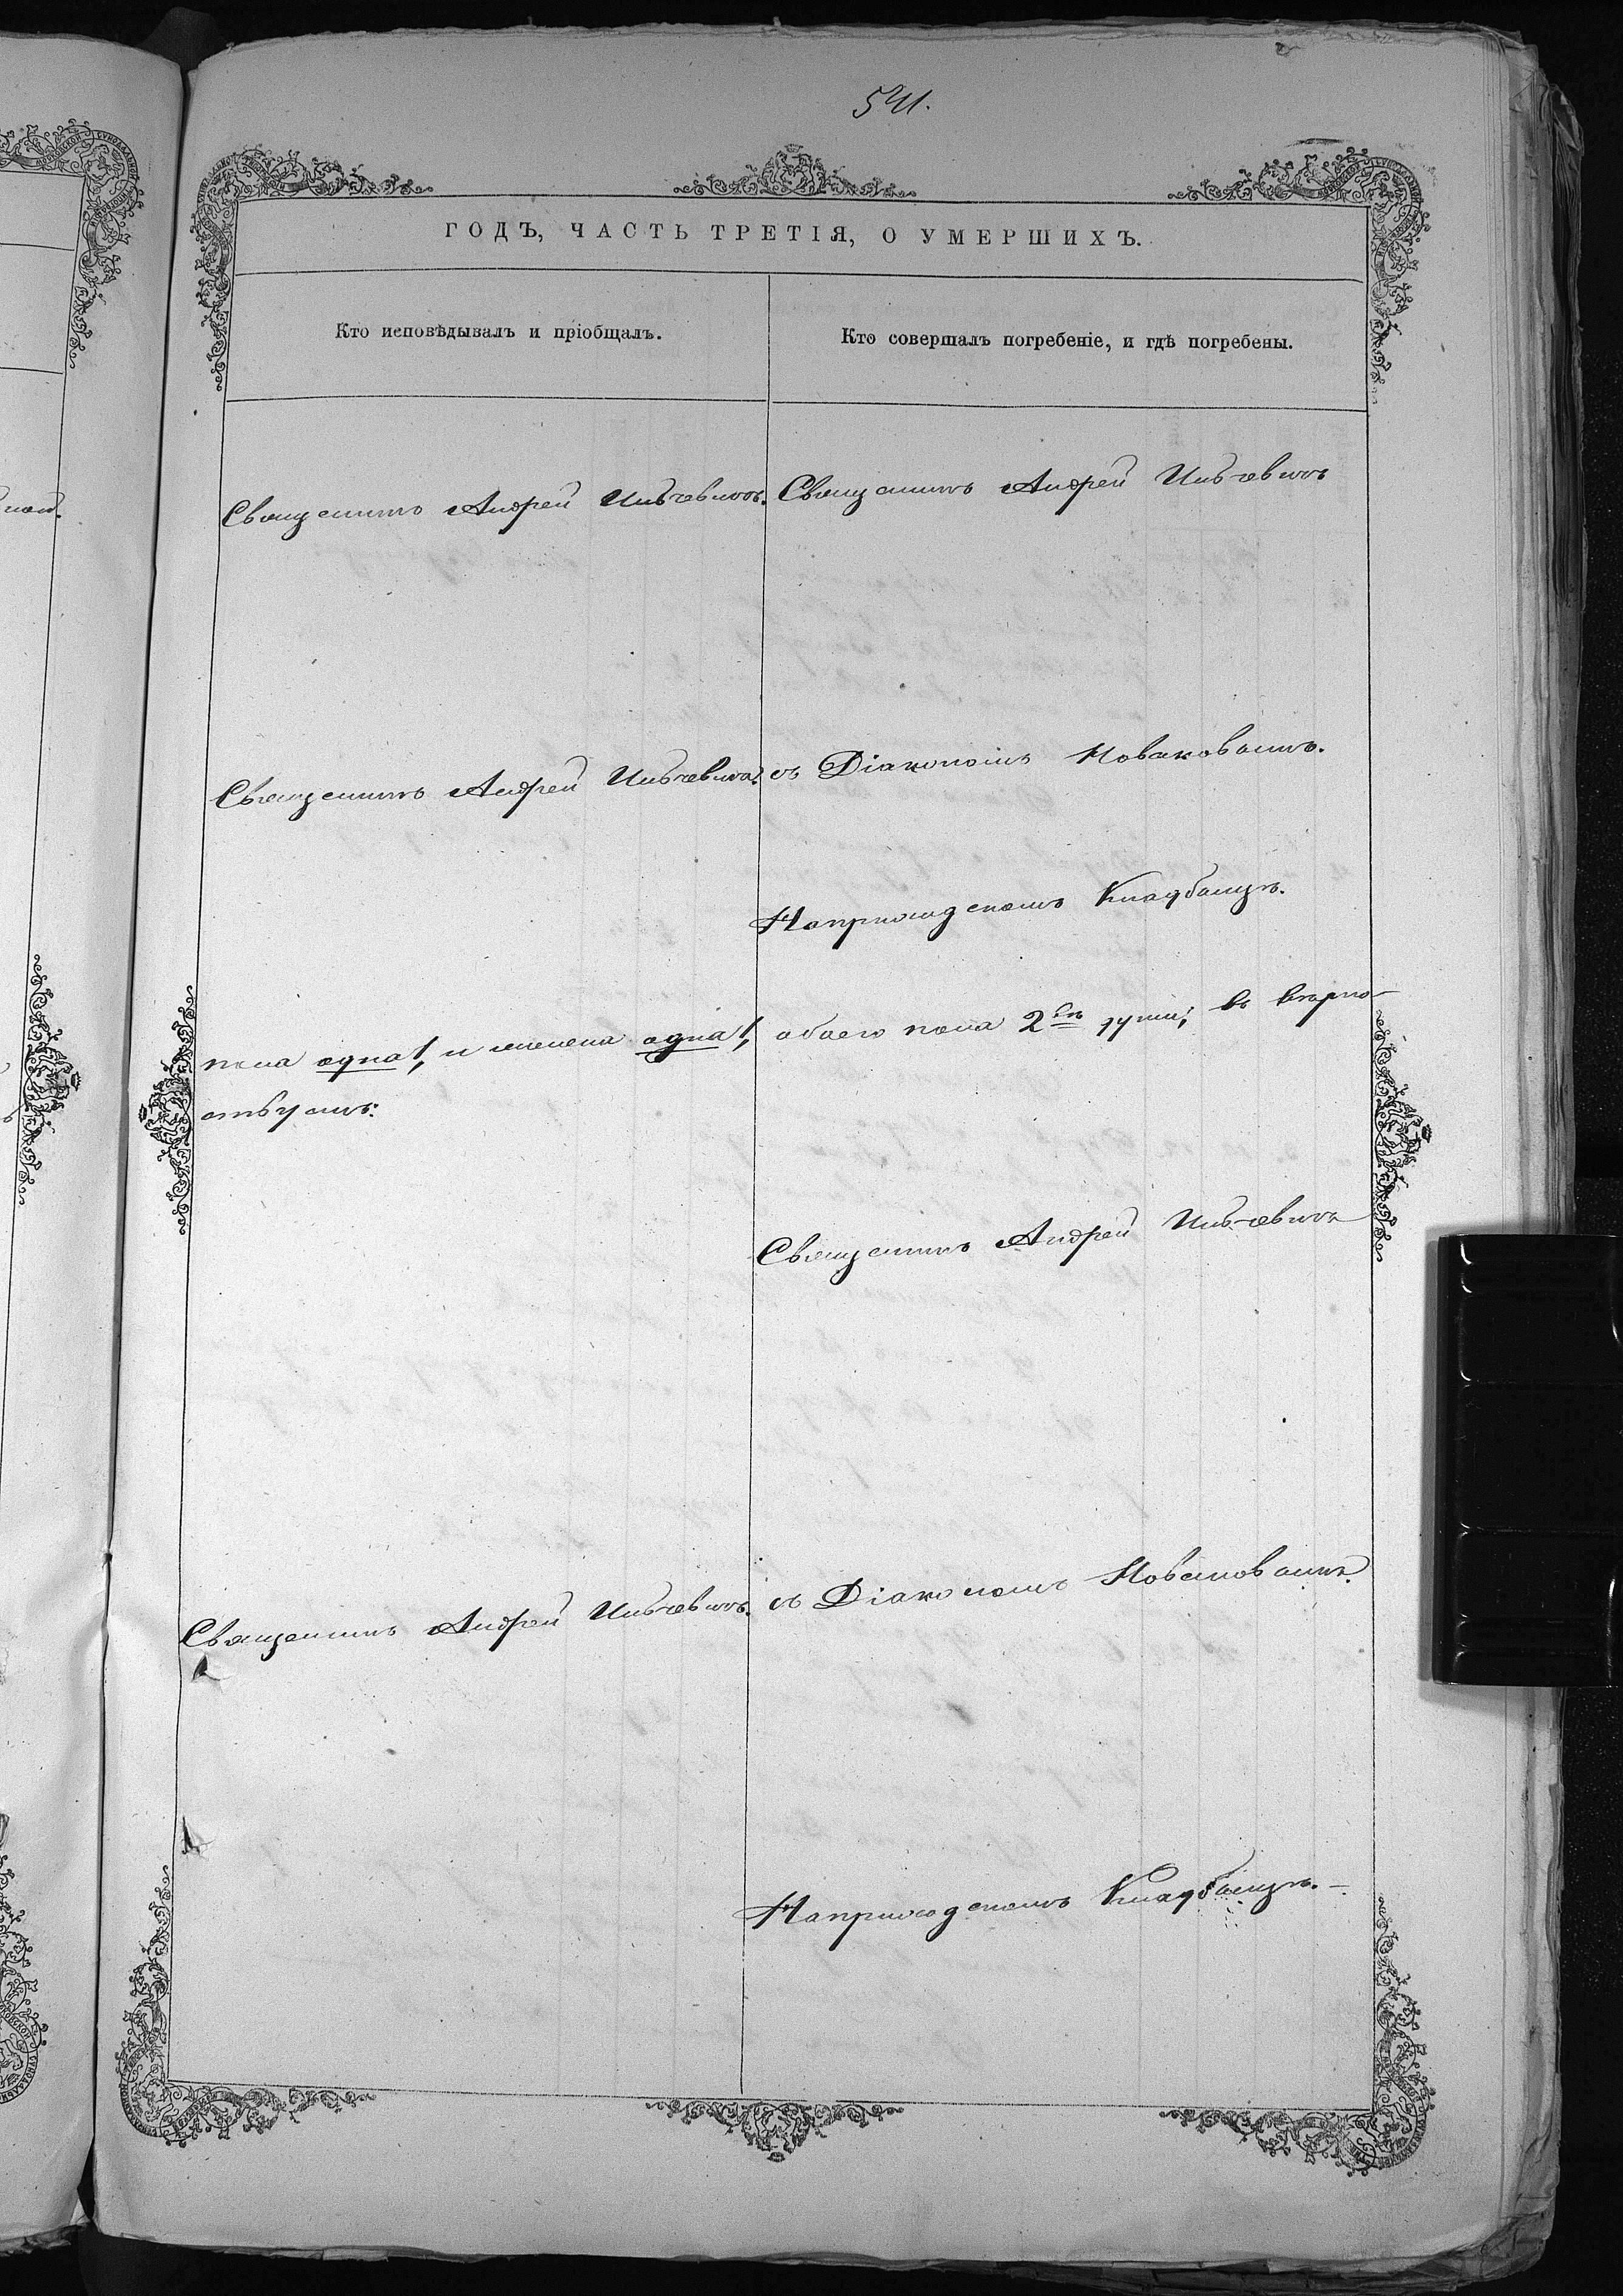 541.
ГОДЪ, ЧАСТЬ ТРЕТІЯ, О УМЕРШИХЪ.
Кто исповѣдывалъ и пріобщалъ.
Кто совершалъ погребеніе, и гдѣ погребены.
Священникъ Андрей
Священникъ Андрей
Священникъ Андрей
съ Діакономъ Новаковымъ.
Наприходскомъ Кладбищѣ.
пола одна, и женска одна, обоего пола 2 души; въ вѣрно-
Священникъ Андрей
Священникъ Андрей
съ Діакономъ Новаковымъ.
Наприходскомъ Кладбищѣ.